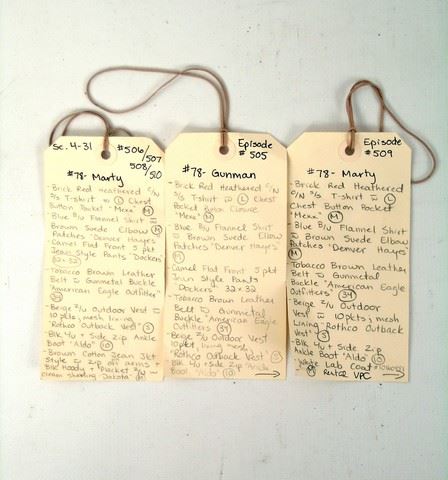 Sc. 4-31 #506/507
508/510
#78- Marty
- Brick Red Heathered C/N
S/S T-shirt w L Chest
Button Pocket "Mexx" M
- Blue B/U Flannel Shirt w
Brown Suede Elbow M
Patches "Denver Hayes"
- Camel Flat Front 5 pkt
Jean Style Pants "Dockers"
32 x 32
- Tobacco Brown Leather
Belt w Gunmetal Buckle
"American Eagle
Outfitters" 34
- Beige Z/U Outdoor Vest w
10 pkts, mesh lining
"Rothco Outback Vest" S
- Blk 4/u + Side Zip Ankle
Boot "Aldo" 10
- Brown Cotton Jean Jkt
Style w Zip off arms +
Blk Hoody + Placket Z/U
Cream "Dakota"
Episode
# 505
#78- Gunman
- Brick Red Heathered C/N
S/S T-shirt w L Chest
Pocket Button Closure
"Mexx" M
- Blue B/U Flannel Shirt
w Brown Suede Elbow
Patches "Denver Hayes"
M
- Camel Flat Front 5 pkt
Jean Style Pants
"Dockers" 32 x 32
- Tobacco Brown Leather
Belt w Gunmetal
Buckle "American Eagle
Outfitters" 34
- Beige Z/U Outdoor Vest w
10 pkt, lining mesh
"Rothco Outback Vest" S
- Blk 4/u + Side Zip Ankle
Boot "Aldo" 10
Episode
#509
#78- Marty
- Brick Red Heathered
C/N S/S T-shirt w L
Chest Button Pocket
"Mexx" M
- Blue B/U Flannel Shirt
w Brown Suede Elbow
Patches "Denver Hayes"
M
- Tobacco Brown Leather
Belt w Gunmetal
Buckle "American Eagle
Outfitters" 34
- Beige Z/U Outdoor
Vest w 10 pkts, mesh
lining "Rothco Outback
Vest" S
- Blk 4/u + Side Zip
Ankle Boot "Aldo" 10
- White Lab Coat
M VPC